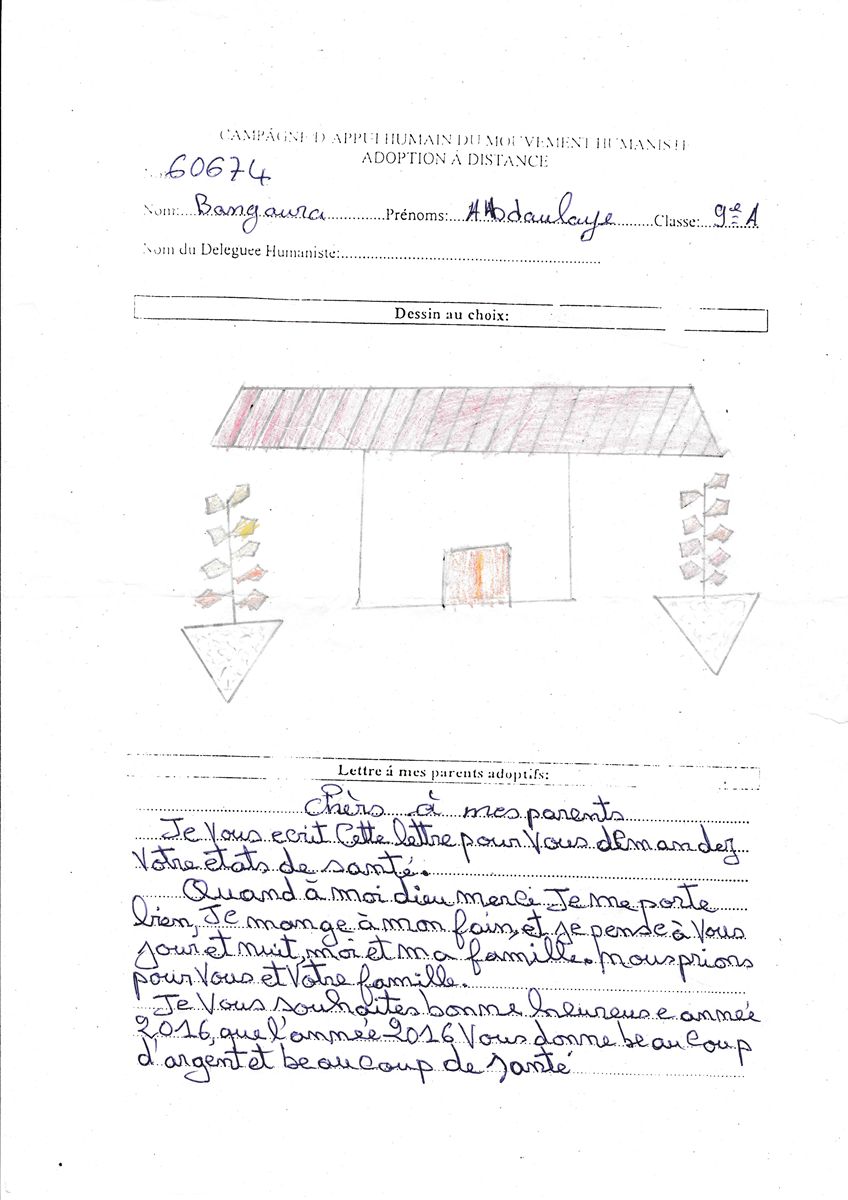 CAMPAGNE D'APPUI HUMAIN DU MOUVEMENT HUMANISTE
ADOPTION À DISTANCE
60674
Nom: Bangoura Prénoms: Abdoulaye Classe: 9e A
Nom du Deleguee Humaniste:
Dessin au choix:
Lettre á mes parents adoptifs:
Chèrs à mes parents
Je Vous ecrit Cette lettre pour Vous demandez
Votre états de santé.
Quand à moi dieu merci Je me porte
bien, Je mange à mon faim, et je pense à Vous
jour et nuit, moi et ma famille. nous prions
pour Vous et Votre famille.
Je Vous souhaites bonne heureuse année
2016, que l'année 2016 Vous donne beaucoup
d'argent et beaucoup de santé